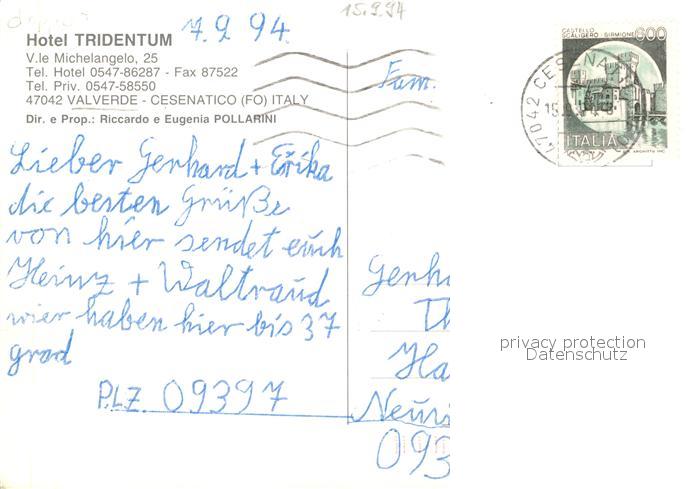 15.9.94
7.9 94.
Hotel TRIDENTUM
V.le Michelangelo, 25
Tel. Hotel 0547-86287 - Fax 87522
Tel. Priv. 0547-58550
47042 VALVERDE - CESENATICO (FO) ITALY
Dir. e Prop.: Riccardo e Eugenia POLLARINI
Lieber Gerhard + Erika
die besten Grüße
von hier sendet euch
Heinz + Waltraud
wier haben hier bis 37
grad
P.L.Z. 09397
CASTELLO
SCALIGERO - SIRMIONE
600
ITALIA
47042 CESENA
15
Fam.
Gerh
Th
Ha
Neu
093
privacy protection
Datenschutz